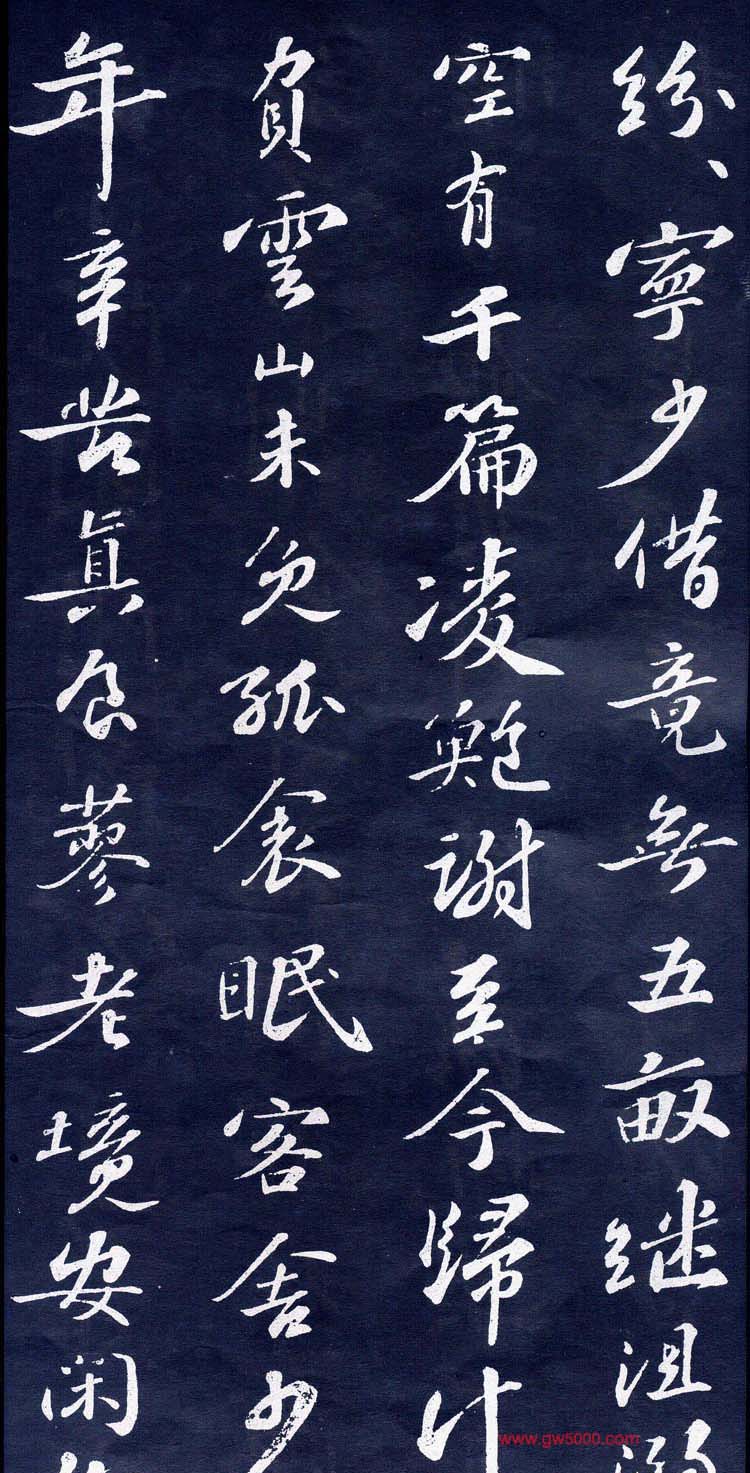 纷、寧少借竟無五畝继沮溺
空有千篇凌鲍謝至今歸计
負雲山未免孤衾眠客舍少
年辛苦真食蓼老境安闲
www.gw5000.com